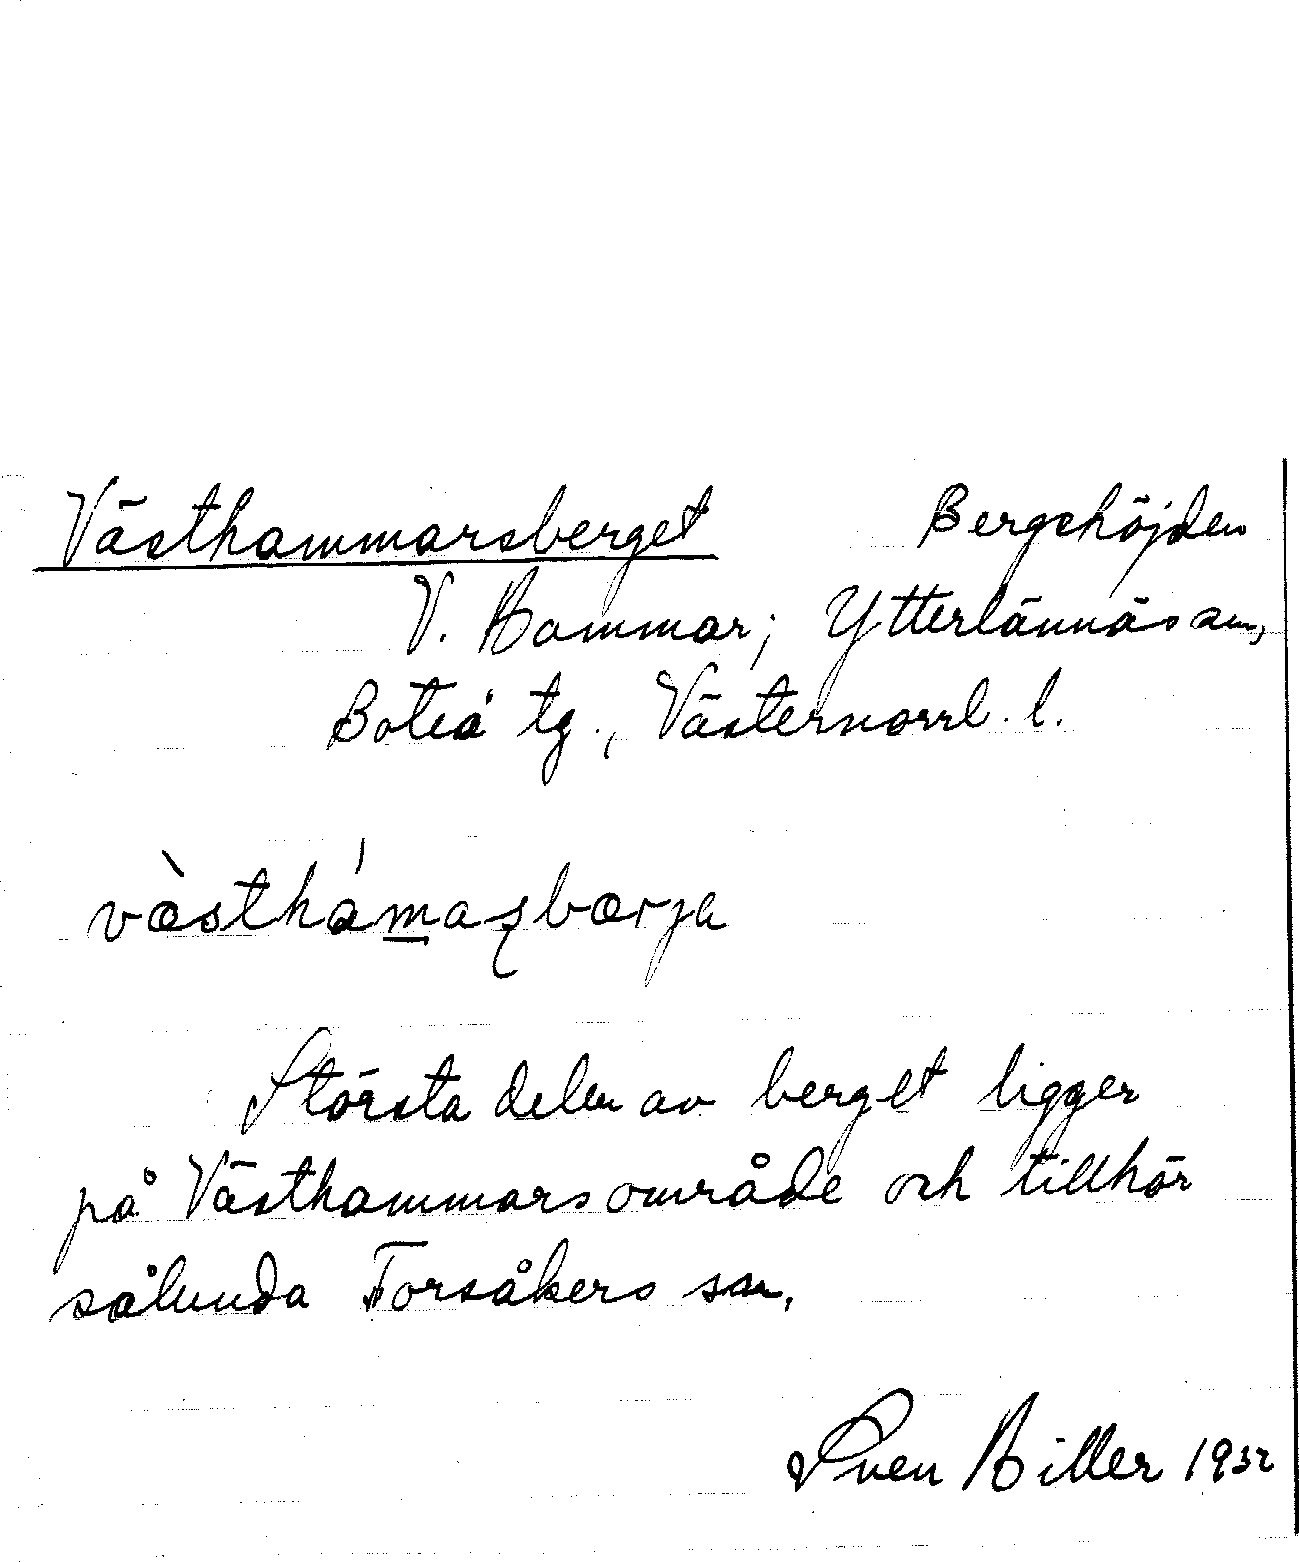 Västhammarsberget Bergshöjden
V. Hammar; Ytterlännäs sn,
Boteå tg., Västernorrl. l.
væ̀sthámaʂbærja
Största delen av berget ligger
på Västhammars område och tillhör
sålunda Torsåkers sn.
Sven Hiller 1932